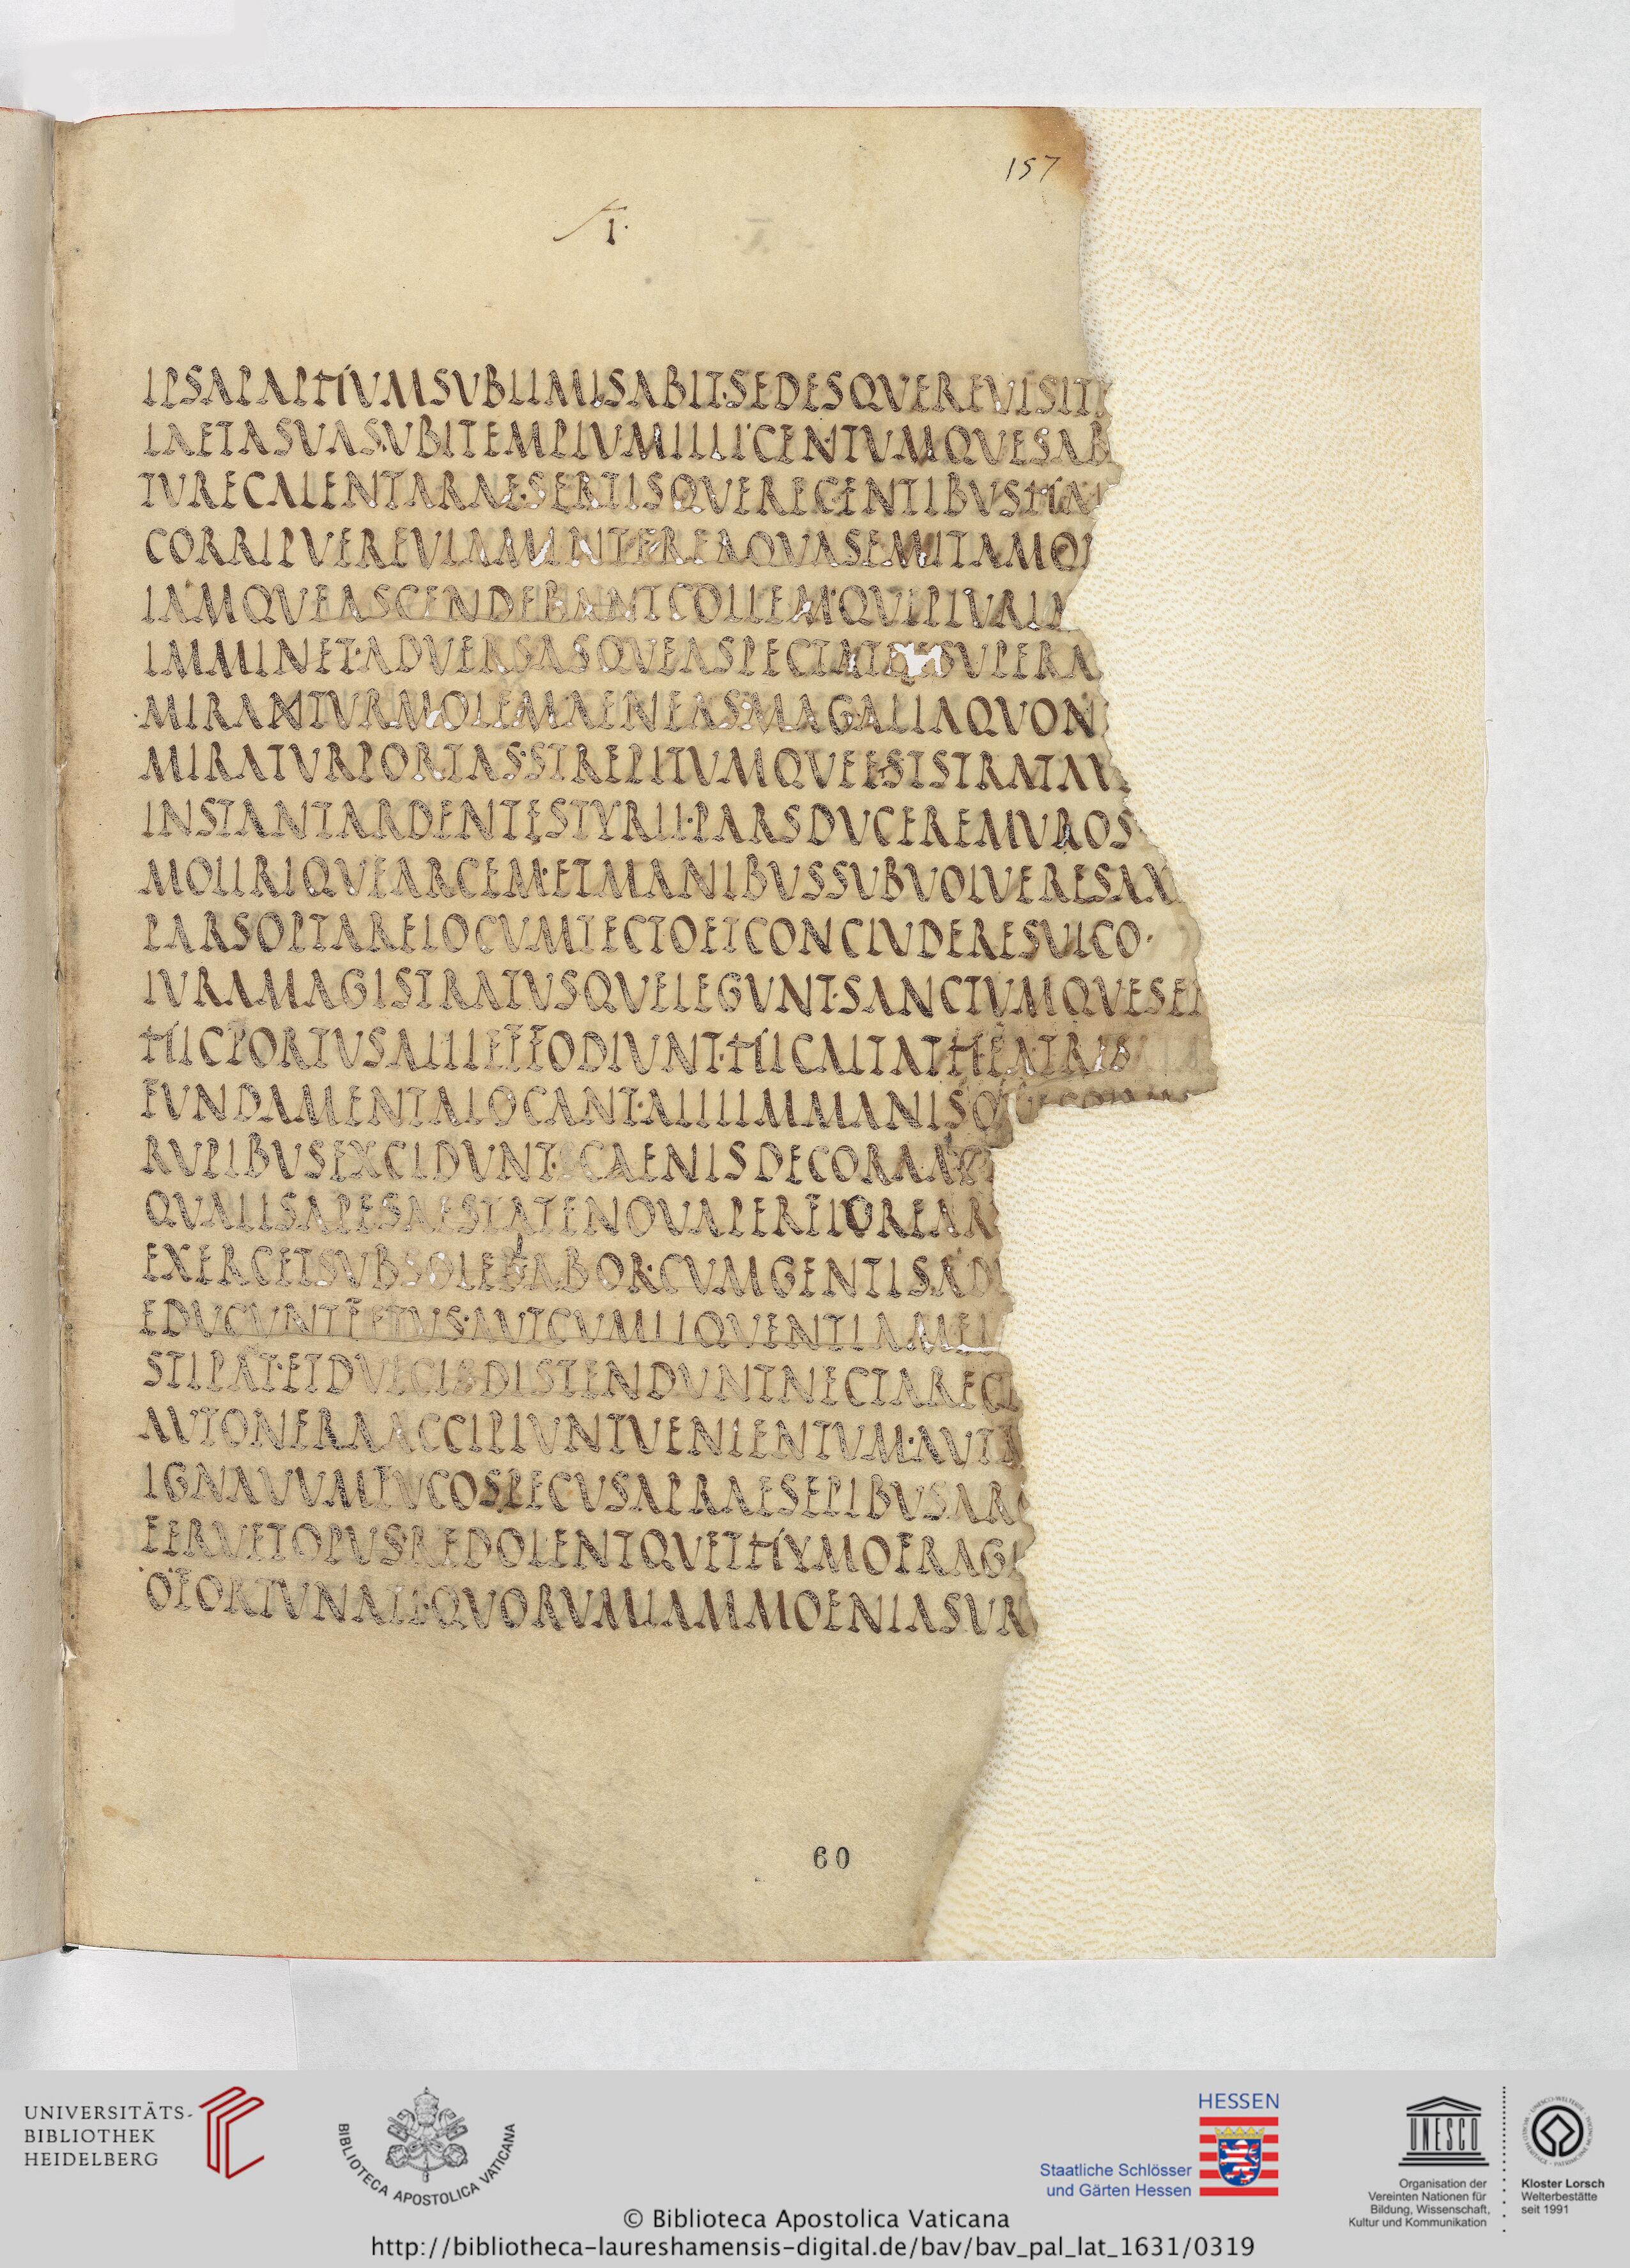 157
IPSAPAPHVMSVBLIMISABIT·SEDESQVEREVISIT
LAETASVASVBITEMPLVMILLICENTVMQVESAB
TVRECALENTARAE·SERTISQVERECENTIBVSHA
CORRIPVEREVIAMINTEREAQVASEMITAMO
IAMQVEASCENDEBANTCOLLEMQVIPLVRI
IMMINET·ADVERSASQVEASPECTATDESVPERA
MIRANTVRMOLEMAENEASMAGALIAQVON
MIRATVRPORTAS·STREPITVMQVEESTSTRATAV
INSTANTARDENTESTYRII·PARSDVCEREMVROS
MOLIRIQVEARCEM·ETMANIBVSSVBVOLVERESAX
PARSOPTARELOCVMTECTOETCONCLVDERESVLCO·
IVRAMAGISTRATVSQVELEGVNT·SANCTVMQVESEN
HICPORTVSALIIEFFODIVNT·HICALTATHEATRIS
FVNDAMENTALOCANT·ALIIIMMANISQVECOLVM
RVPIBVSEXCIDVNT·SCAENISDECORAAL
QVALISAPESAESTATENOVAPERFLOREAR
EXERCETSVBSOLELABOR·CVMGENTISAD
EDVCVNTFETVS·AVTCVMLIQVENTIAMEL
STIPĀT·ETDVLCISDISTENDVNTNECTARECE
AVTONERAACCIPIVNTVENIENTVM·AVTA
IGNAVVMFVCOSPECVSAPRAESEPIBVSAR
FERVETOPVSREDOLENTQVETHYMOFRAG
OFORTVNATI·QVORVMIAMMOENIASVR
60
UNIVERSITÄTS-
BIBLIOTHEK
HEIDELBERG
BIBLIOTECA APOSTOLICA VATICANA
HESSEN
Staatliche Schlösser
und Gärten Hessen
UNESCO
Organisation der
Vereinten Nationen für
Bildung, Wissenschaft,
Kultur und Kommunikation
Kloster Lorsch
Welterbestätte
seit 1991
© Biblioteca Apostolica Vaticana
http://bibliotheca-laureshamensis-digital.de/bav/bav_pal_lat_1631/0319